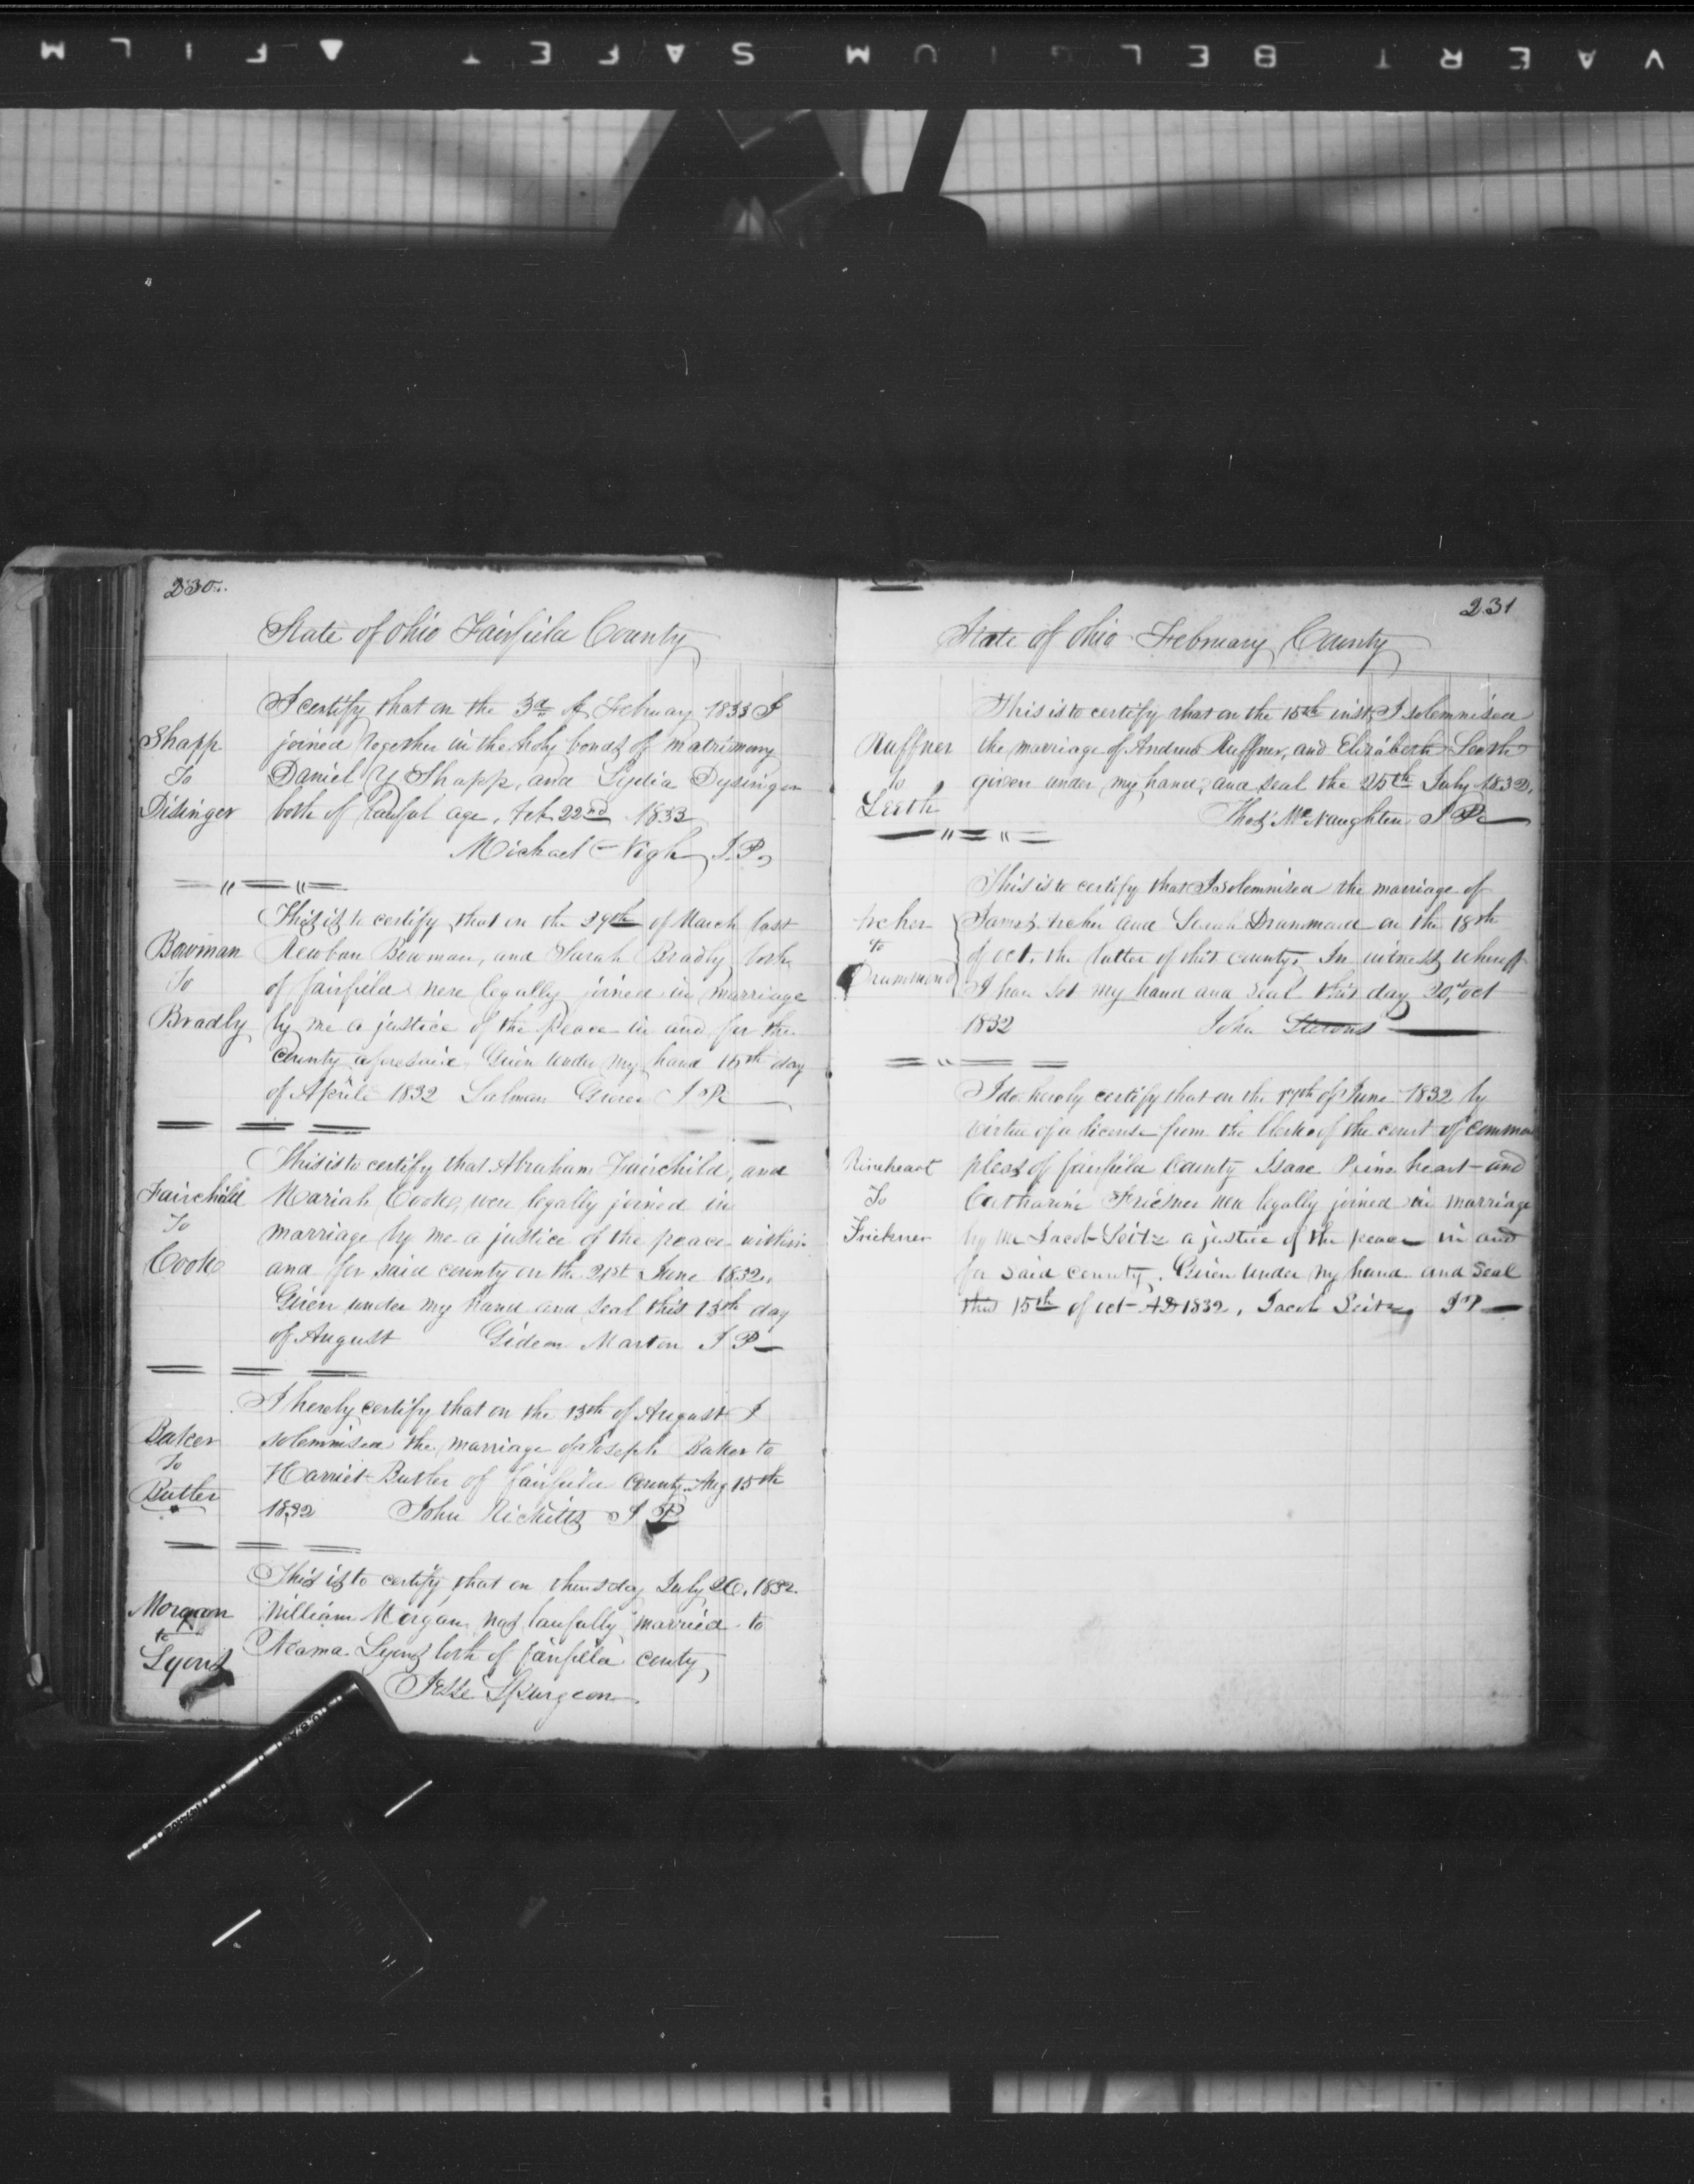 VAERT BELGIUM SAFETY FILM
230
State of Ohio Fairfield County
I certify that on the 3d of February 1833 I
Shapp joined together in the holy bonds of matrimony
To Daniel Y Shapp, and Lydia Dysinger
Disinger both of lawful age. Feb 22nd 1833
Michael Nigh J.P.
This is to certify that on the 29th of March last
Bowman Newban Bowman, and Sarah Bradly both
To of fairfield were legally joined in marriage
Bradly by me a justice of the peace in and for the
County aforesaid Given under my hand 16th day
of Aprile 1832 J P
This is to certify that Abraham Fairchild, and
Fairchild Mariah Cooke, were legally joined in
To marriage by me a justice of the peace within
Cooke and for said county on the 21st June 1832.
Given under my hand and seal this 13th day
of August Gideon Marton J P
I hereby certify that on the 13th of August I
Baker solemnised the marriage of Joseph Baker to
To Harriet Butler of fairfield County Aug 15th
Butler 1832 John Ricketts J P
This is to certify that on thursday July 26, 1832.
Morgan William Morgan was laufully married to
to Lyons both of fairfield conty,
Lyons Jesse Spurgeon
231
State of Ohio February County
This is to certify that on the 15th inst I solemnised
Ruffner the marriage of Andrew Ruffner, and Elizabeth Leeth
to given under my hand, and seal the 25th July 1832.
Leeth Thos McNaughten J P
This is to certify that I solemnised the marriage of
Archer James Archer and Sarah Drummond on the 18th
to of oct. the latter of this county. In witness whereof
Drummond I have set my hand and seal this day 20th oct
1832 John Stevens
I do hereby certify that on the 17th of June 1832 by
virtue of a license from the Clerk of the court of common
Rineheart pleas of fairfield County Isaac Rine heart and
To Catharine Friesner wer legally joined in marriage
Frickner by me Jacob Seitz a justice of the peace in and
for said county. Given under my hand and seal
this 15th of oct AD 1832, Jacob Seitz J P